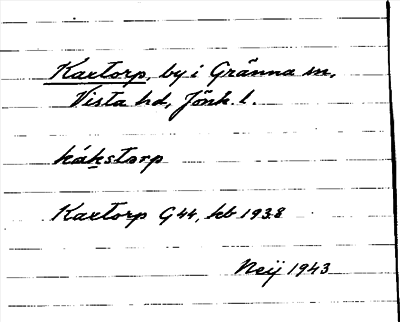 Kaxtorp, by i Gränna sn,
Vista hd, Jönk. l.
kákstorp
Kaxtorp G 44, kb 1938
Neij 1943